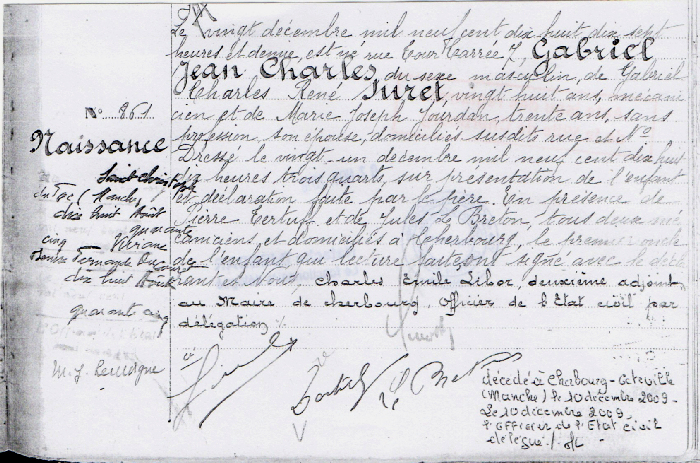 Le vingt décembre mil neuf cent dix huit dix sept
heures et demie, est né rue Tour Carrée 7, Gabriel
Jean Charles, du sexe masculin, de Gabriel
Charles René Juret, vingt huit ans, mécani
cien et de Marie Joseph Jourdan, trente ans, sans
profession son épouse, domiciliés susdits rue et No
Dressé le vingt-un décembre mil neuf cent dix huit
dix heures trois quarts, sur présentation de l'enfant
et déclaration faite par le père. En présence de
Pierre Tertuf et de Jules Le Breton, tous deux mé
caniciens et domiciliés à Cherbourg, le premier oncle
de l'enfant qui lecture faite, ont signé avec le décla
rant et Nous, Charles Emile Libor, deuxième adjoint
au Maire de Cherbourg, Officier de l'Etat civil par
délégation ./.
No 861
Naissance
(Manche)
dix huit Août
quarante
cinq
Fernande
dix huit Août
quarante cinq
Le Br
décédé à Cherbourg-Octeville
(Manche) le 10 décembre 2009.
Le 10 décembre 2009.
l'Officier de l'Etat civil
délégué ./.